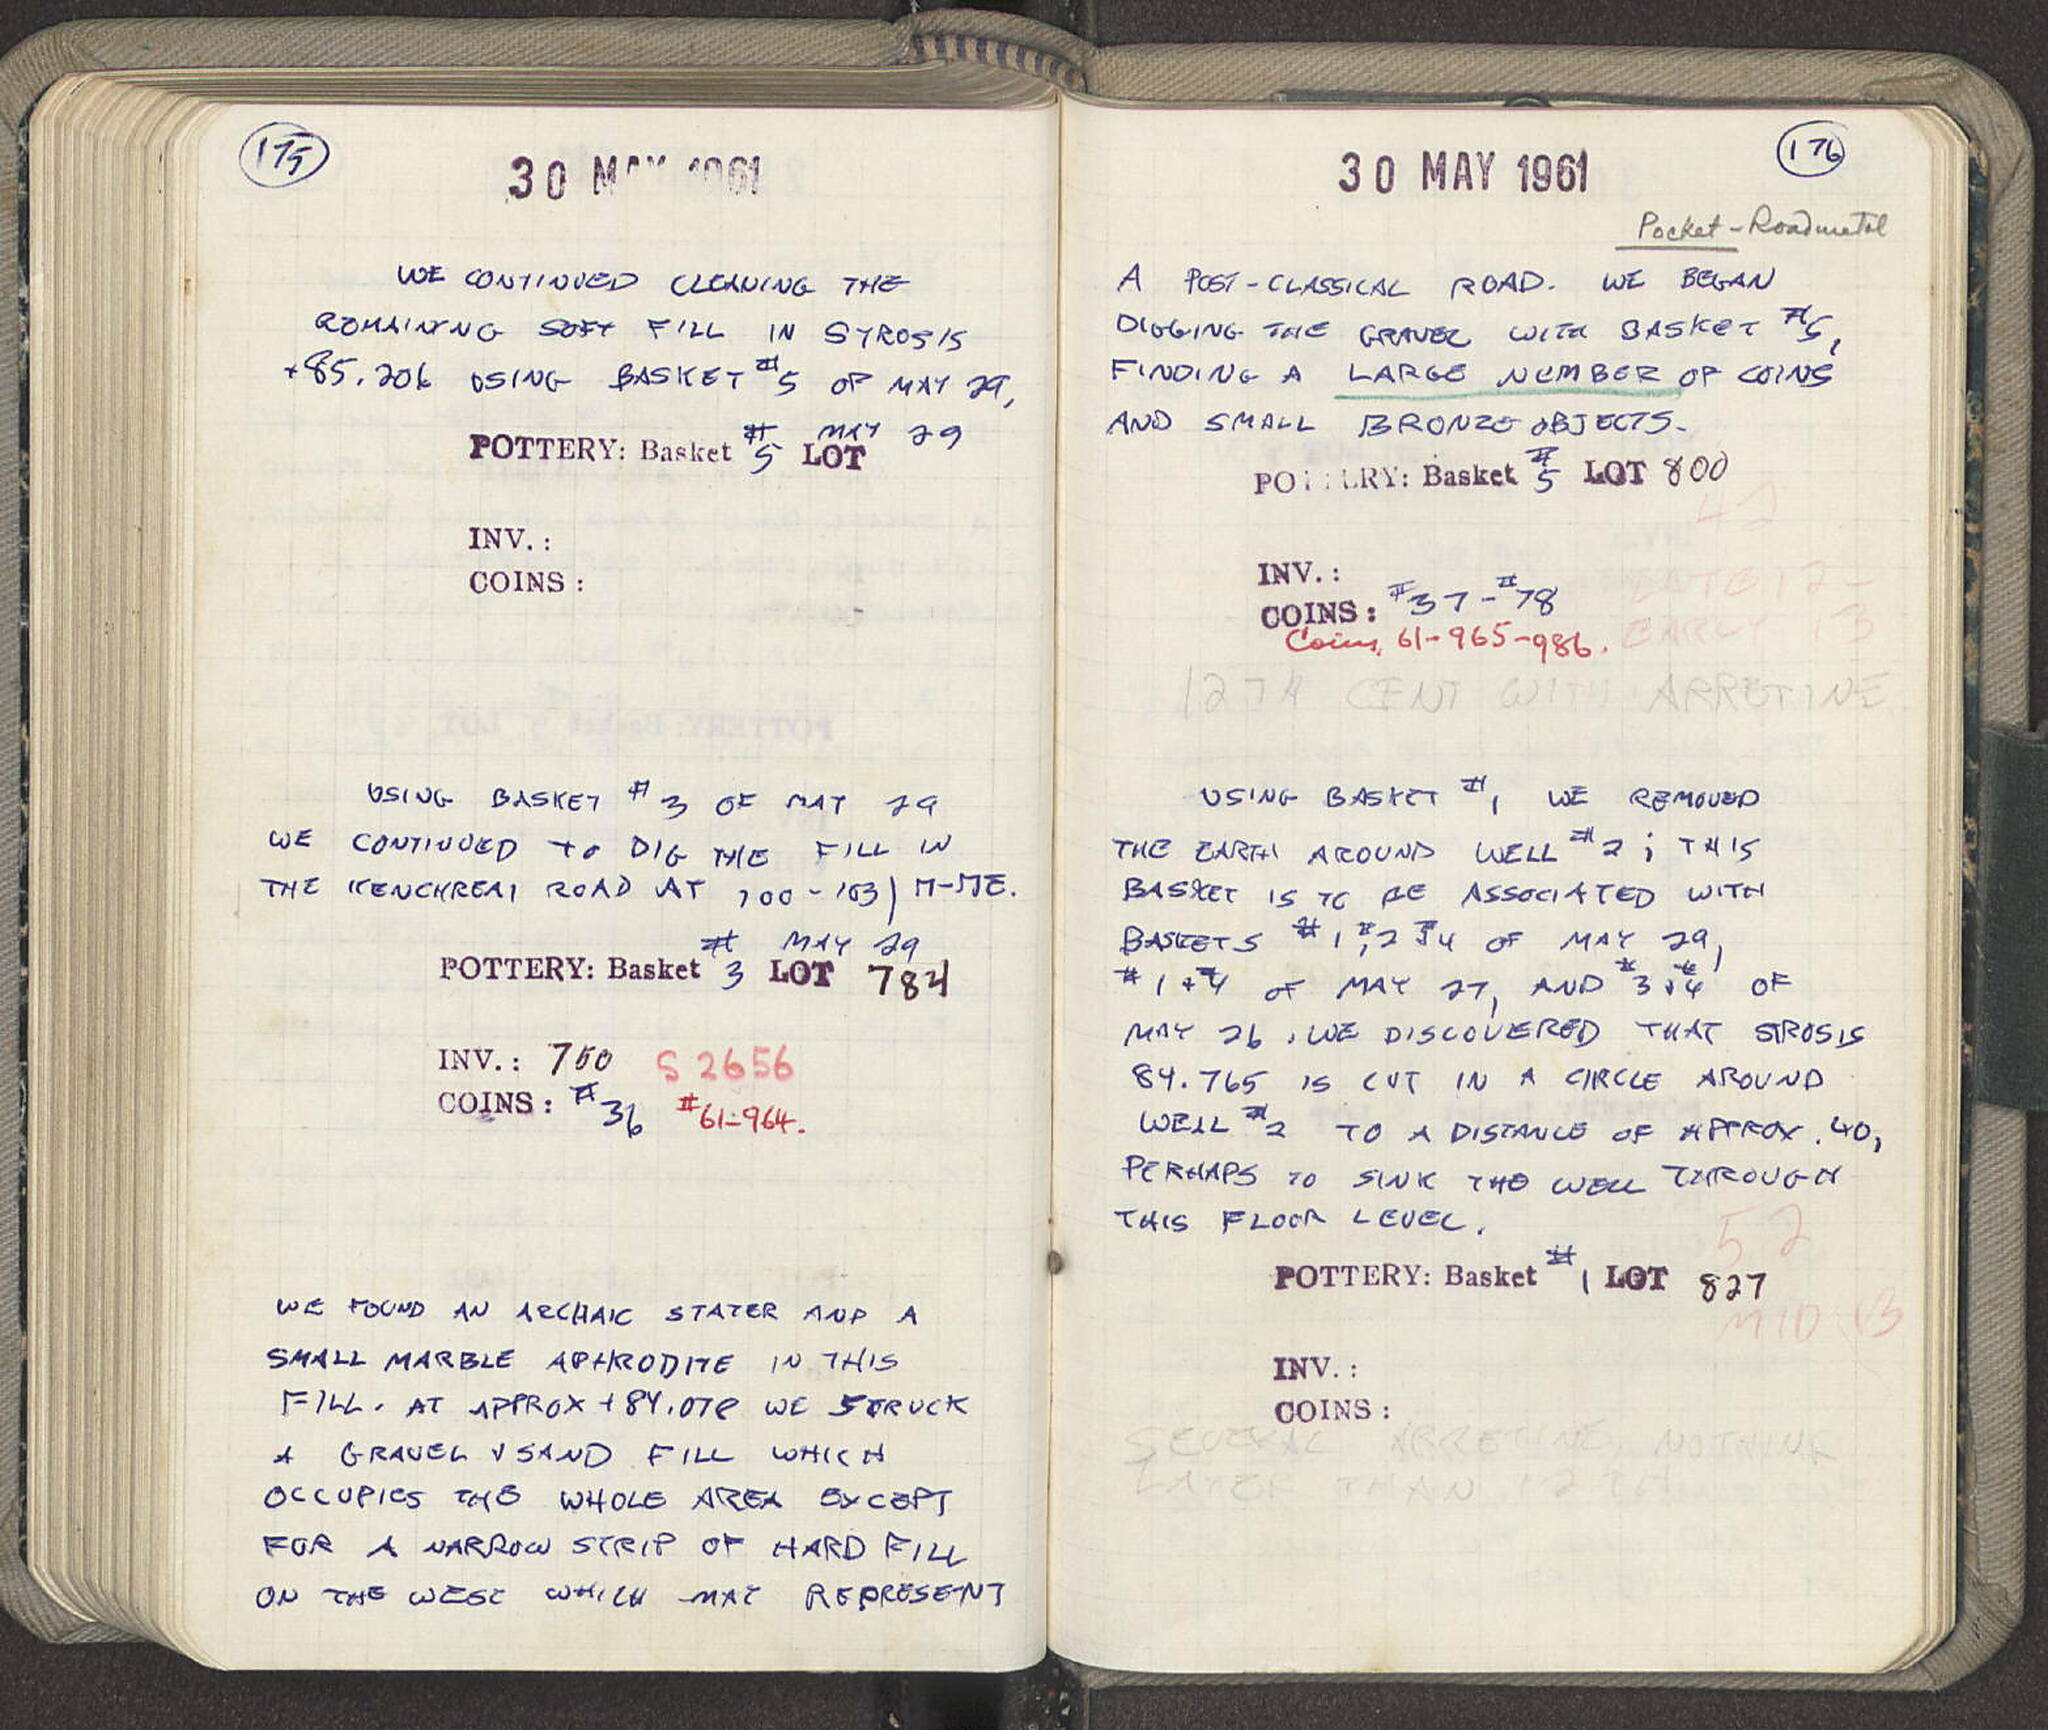 175
30 MAY 1961
WE CONTINUED CLEANING THE
REMAINING SOFT FILL IN STROSIS
+85.206 USING BASKET #5 OF MAY 29,
POTTERY: Basket #5 MAY 29 LOT
INV.:
COINS:
USING BASKET #3 OF MAY 29
WE CONTINUED TO DIG THE FILL IN
THE KENCHREAI ROAD AT 100-103/ M-ME.
POTTERY: Basket #3 MAY 29 LOT 784
INV.: 750 S 2656
COINS: #36 #61-964.
WE FOUND AN ARCHAIC STATER AND A
SMALL MARBLE APHRODITE IN THIS
FILL. AT APPROX +84.078 WE STRUCK
A GRAVEL & SAND FILL WHICH
OCCUPIES THE WHOLE AREA EXCEPT
FOR A NARROW STRIP OF HARD FILL
ON THE WEST WHICH MAY REPRESENT
176
30 MAY 1961
Pocket - Roadmetal
A POST-CLASSICAL ROAD. WE BEGAN
DIGGING THE GRAVEL WITH BASKET #5,
FINDING A LARGE NUMBER OF COINS
AND SMALL BRONZE OBJECTS.
POTTERY: Basket #5 LOT 800
42
INV.:
LATE 12-
COINS: #37-#78
EARLY 13
Coins 61-965-986.
12TH CENT WITH ARRETINE
USING BASKET #1, WE REMOVED
THE EARTH AROUND WELL #2; THIS
BASKET IS TO BE ASSOCIATED WITH
BASKETS #1, #2 #4 OF MAY 29,
#1 + #4 OF MAY 27, AND #3 + #4 OF
MAY 26. WE DISCOVERED THAT STROSIS
84.765 IS CUT IN A CIRCLE AROUND
WELL #2 TO A DISTANCE OF APPROX .40,
PERHAPS TO SINK THE WELL THROUGH
THIS FLOOR LEVEL.
52
POTTERY: Basket #1 LOT 827
MID 13
INV.:
COINS:
SEVERAL ARRETINE, NOTHING
LATER THAN 12TH